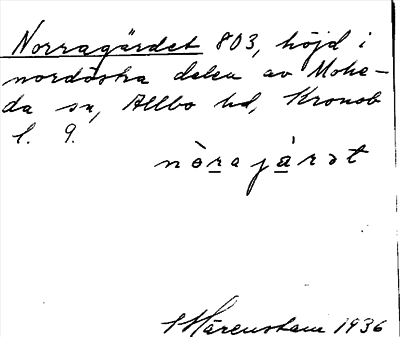 Norragärdet 803, höjd i
nordöstra delen av Mohe-
da sn, Allbo hd, Kronob
l. 9.
nòrajárət
S Hårenstam 1936